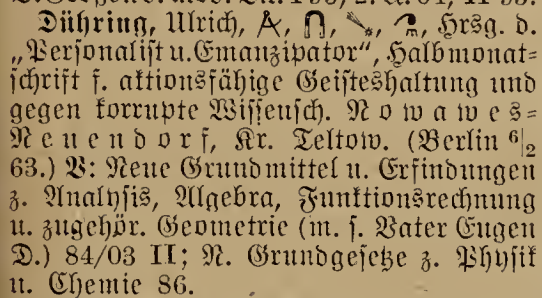 Dühring, Ulrich, Hrsg. d.
„Personalist u. Emanzipator“, Halbmonat-
schrift f. aktionsfähige Geisteshaltung und
gegen korrupte Wissensch. Nowawes-
Neuendorf, Kr. Teltow. (Berlin 6|2
63.) V: Neue Grundmittel u. Erfindungen
z. Analysis, Algebra, Funktionsrechnung
u. zugehör. Geometrie (m. s. Vater Eugen
D.) 84/03 II; N. Grundgesetze z. Physik
u. Chemie 86.